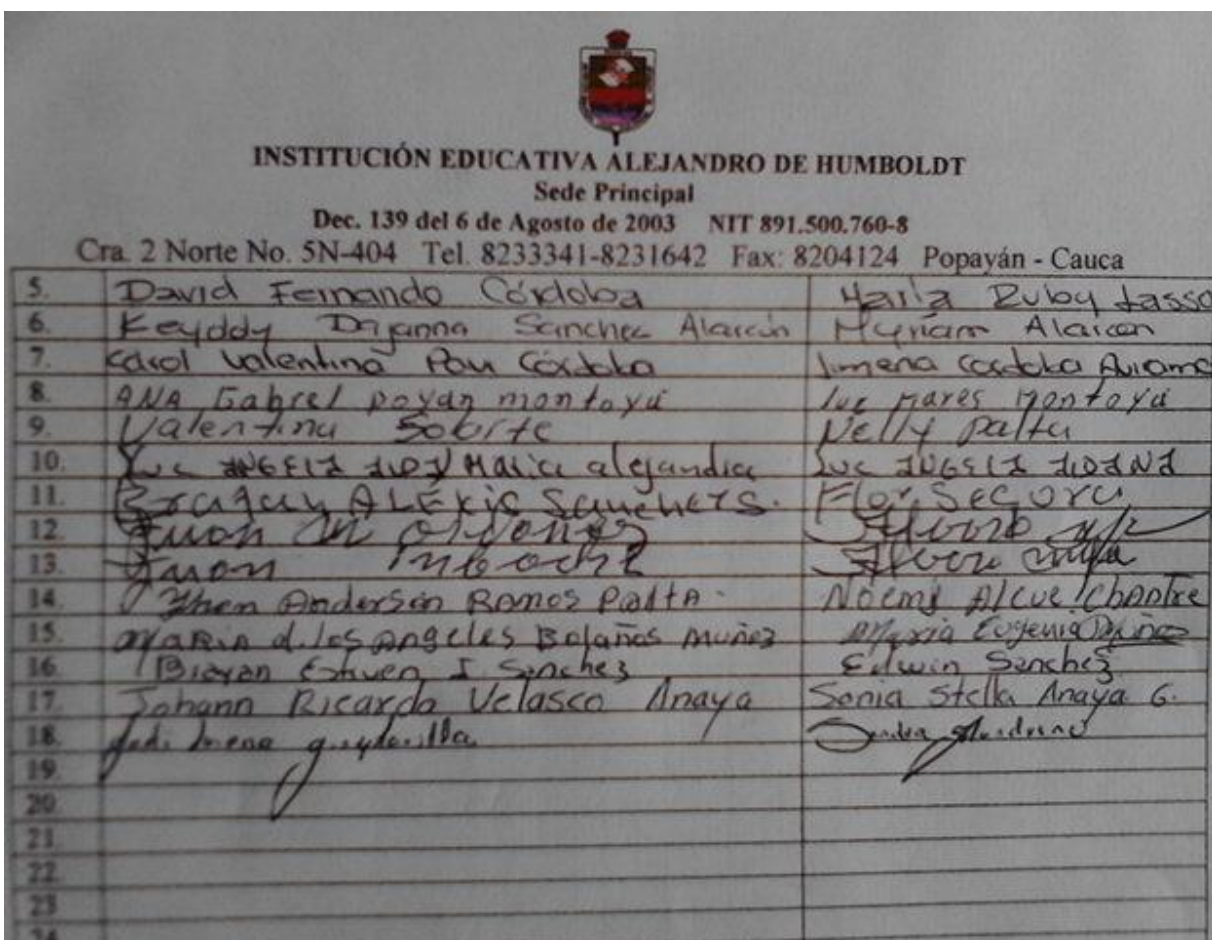 INSTITUCIÓN EDUCATIVA ALEJANDRO DE HUMBOLDT
Sede Principal
Dec. 139 del 6 de Agosto de 2003 NIT 891.500.760-8
Cra. 2 Norte No. 5N-404 Tel. 8233341-8231642 Fax: 8204124 Popayán - Cauca
5. David Fernando Córdoba María Ruby Lasso
6. Keyddy Dajanna Sanchez Alarcón Myriam Alarcon
7. Karol Valentina Córdoba Jimena Cordoba
8. ANA Gabrel poyan montoya luz mares Montoya
9. Valentina Nelly palta
10. Luc ANGELA Maria alejandra Luc ANGELA
11. ALEXIS Sanchers. Flor Segora
12. Juan
13. Juan
14. Jhen Anderson Ramos Palta Noemi Alcue Chantre
15. MARIA d. los angeles Bolaños muñez Maria Eugenia
16. Brayan Estuven I. Sanchez Edwin Sanchez
17. Johann Ricardo Velasco Anaya Sonia Stella Anaya G.
18.
19.
20.
21.
22.
23
24